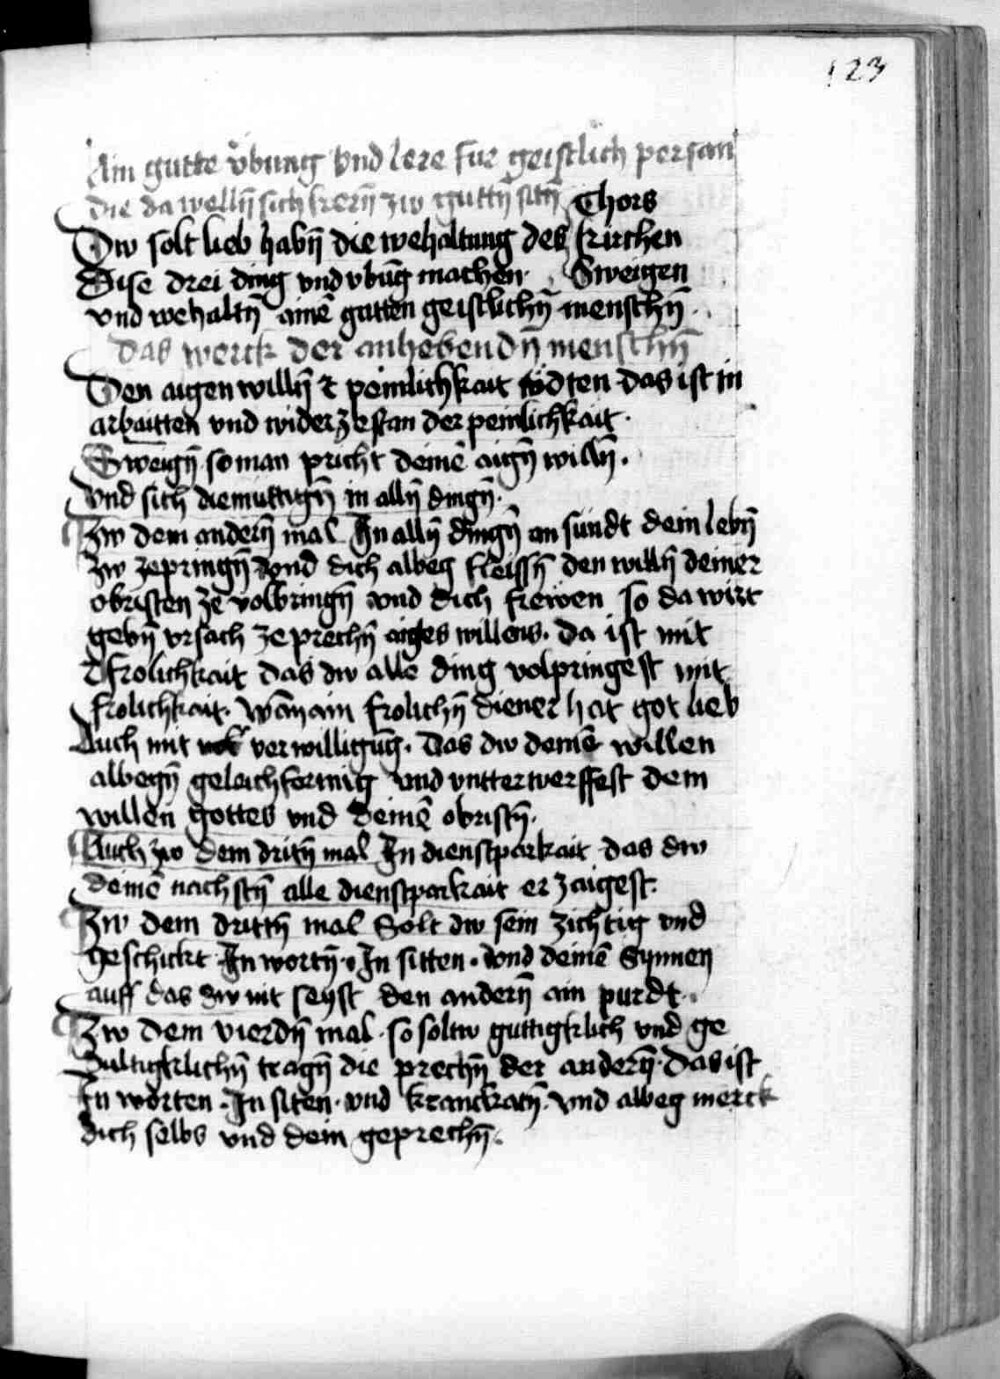 123
Ain gutte vbung vnd lere fur geistlich person
die da wellñ sich kerñ zw guttñ sitñ Chors
Dw solt lieb habñ die wehaltung des kirchen
Dise drei ding vnd vbũg machen Sweigen
vnd wehaltñ ainẽ gutten geistlichñ menschñ
Das werck der anhebendñ menschñ
Den aigen willñ & peinlichkait tödten das ist in
arbaitten vnd widerzestan der peinlichkait
Sweigñ so man pricht deinẽ aigñ willñ.
Vnd sich diemuttigñ in allñ dingñ.
Zw dem anderñ mal In allñ dingñ an sundt dein lebñ
zw zepringñ vnd dich albeg fleissñ den willñ deiner
obristen ze volbringñ vnd dich frewen so da wirt
gebñ vrsach ze prechñ aiges willens. da ist mit
frolichkait das dw alle ding volpringest mit
frolichkait. Wañ ain frolichñ diener hat got lieb
Auch mit verwilligũg. Das dw deinẽ willen
albegñ geleichformig vnd vntterwerffest dem
willen gottes vnd deinẽ obristñ.
Auch zw dem dritñ mal In dienstparkait das dw
deinẽ nachstñ alle dienstparkait erzaigest.
Zw dem drittñ mal Solt dw sein zichtig vnd
geschickt In wortñ. In sitten. vnd deinẽ Synnen
auff das dw nit seyst den anderñ ain purdt.
Zw dem vierdñ mal. so soltw guttigklich vnd ge
dultigklichñ tragñ die prechñ der anderñ. Das ist
In worten. In siten. vnd kranckatñ. vnd albeg merck
dich selbs vnd dein geprechñ.